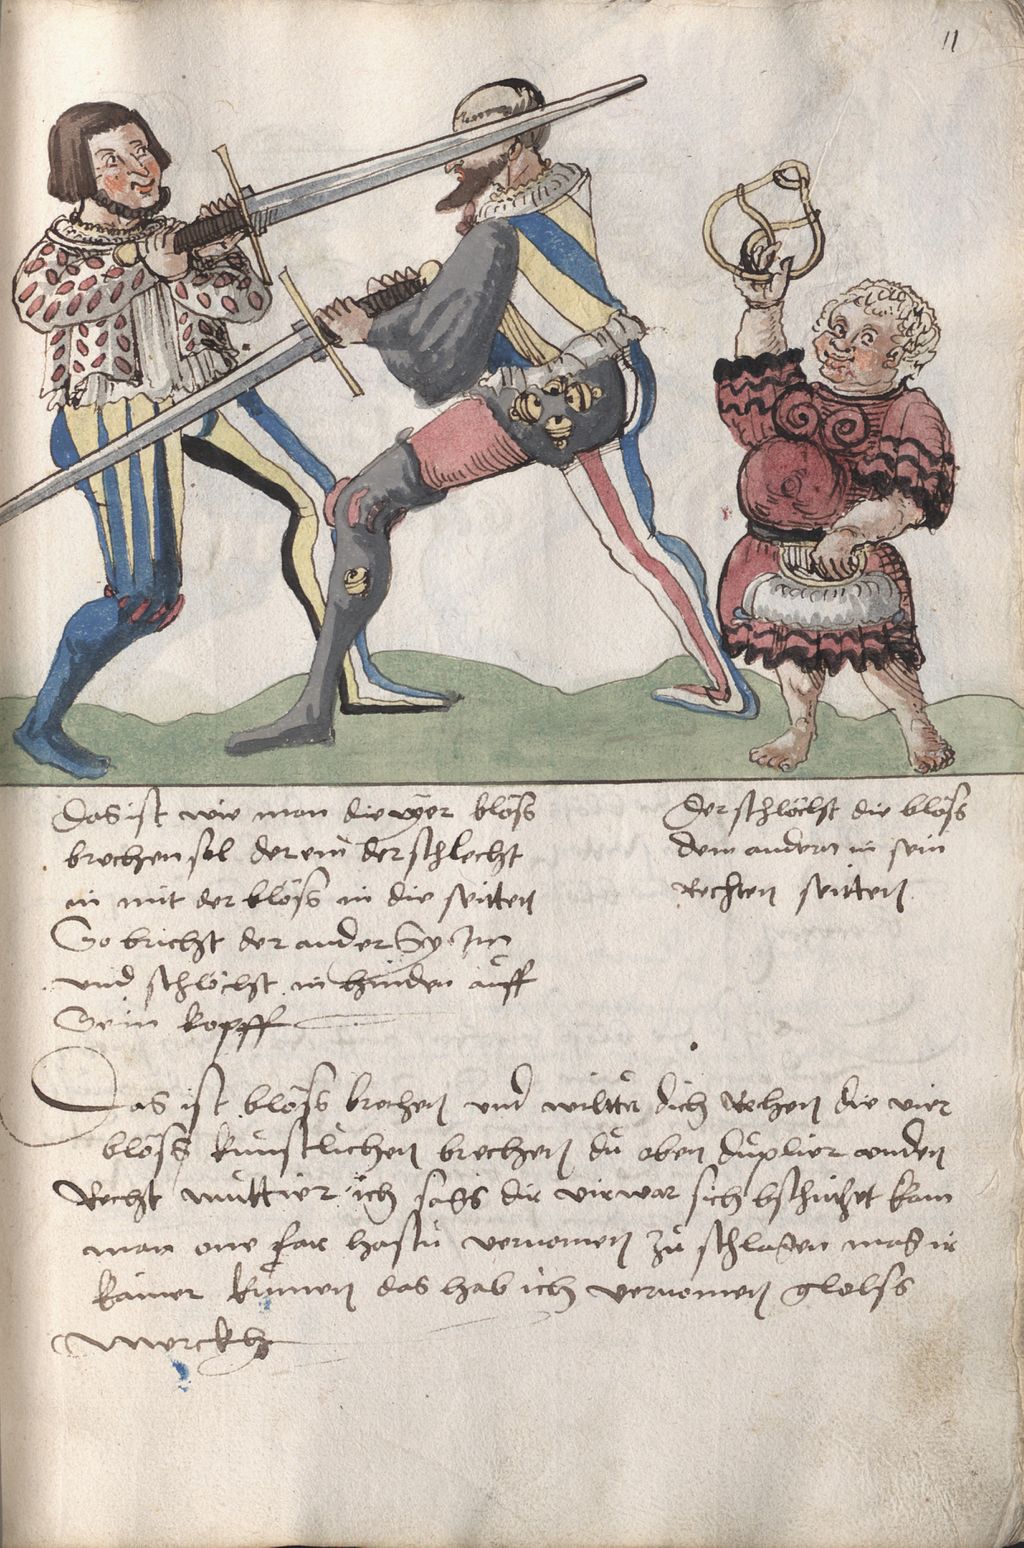 11
Das ist wie man die vyer blöss
brechen sol der ein der schlecht
in mit der blöss in die seitten
So bricht der ander
und schlöchst in hinden auff
Sein kopff
Der schlöchst die blöss
dem andern in sein
Rechten seitten
Das ist blöss brechen und wiltu dich Rechen die vier
blöss kunstlichen brechen du oben duplier unden
Recht muttier ich sags dir vir war sich bschützt kain
man one far hastu vernomen zu schlagen mag er
kaimer kumen das hab ich vernomen gloss
Merckh